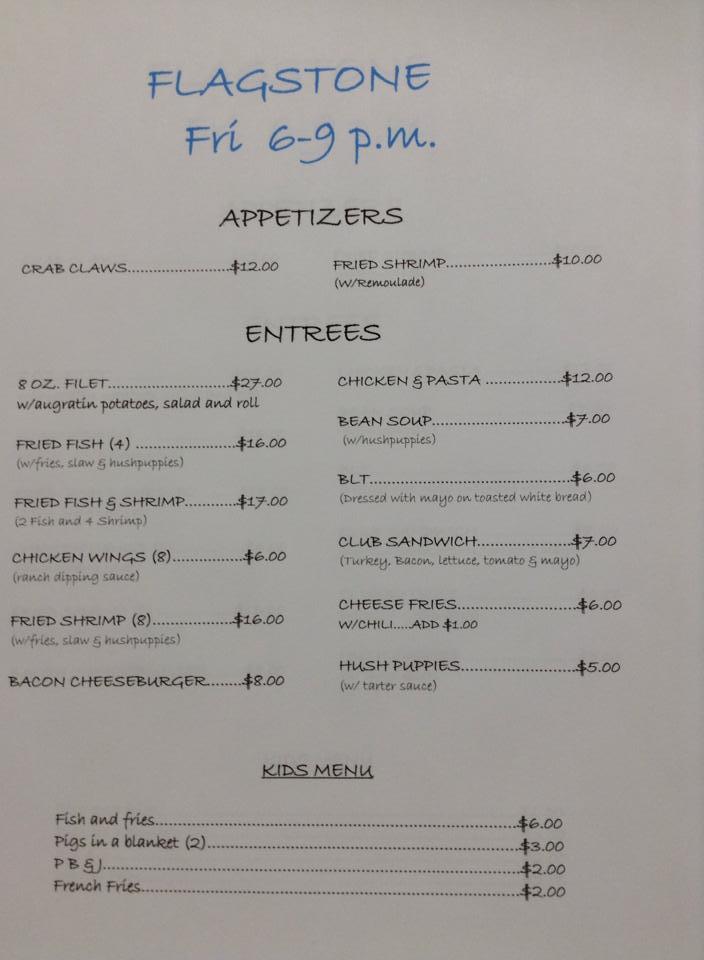 FLAGSTONE
Fri 6-9 p.m.
APPETIZERS
CRAB CLAWS.........................$12.00
FRIED SHRIMP..........................$10.00
(W/Remoulade)
ENTREES
8 OZ. FILET..............................$27.00
w/augratin potatoes, salad and roll
FRIED FISH (4) .........................$16.00
(w/fries, slaw & hushpuppies)
FRIED FISH & SHRIMP............$17.00
(2 Fish and 4 Shrimp)
CHICKEN WINGS (8).................$6.00
(ranch dipping sauce)
FRIED SHRIMP (8)....................$16.00
(w/fries, slaw & hushpuppies)
BACON CHEESEBURGER........$8.00
CHICKEN & PASTA ...................$12.00
BEAN SOUP.................................$7.00
(w/hushpuppies)
BLT.................................................$6.00
(Dressed with mayo on toasted white bread)
CLUB SANDWICH.......................$7.00
(Turkey, Bacon, lettuce, tomato & mayo)
CHEESE FRIES.............................$6.00
W/CHILI.....ADD $1.00
HUSH PUPPIES...........................$5.00
(w/ tarter sauce)
KIDS MENU
Fish and fries....................................................................................$6.00
Pigs in a blanket (2)........................................................................$3.00
P B & J................................................................................................$2.00
French Fries......................................................................................$2.00